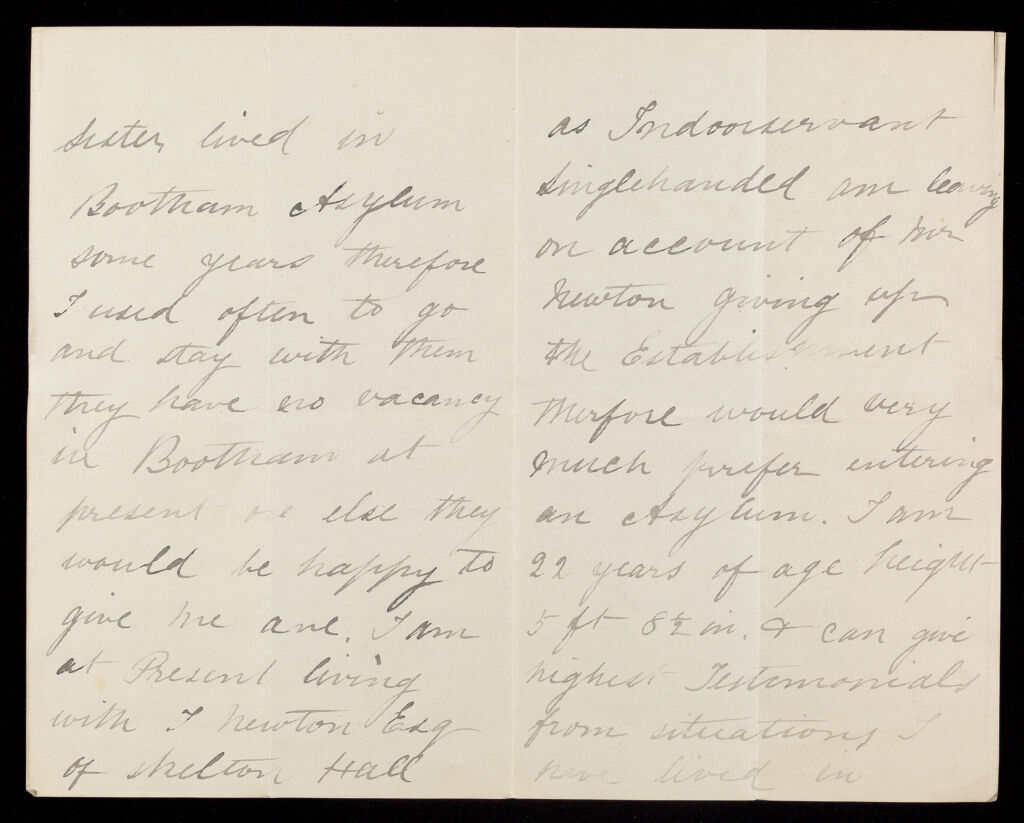 Sister, lived in
Bootham Asylum
some years therefore
I used often to go
and stay with them
they have no vacancy
in Bootham at
present or else they
would be happy to
give me one. I am
at Present living
with I Newton Esq
of Skelton Hall
as Indoorservant
Singlehanded am leaving
on account of Mr
Newton giving up
the Establishment
therfore would very
much prefer entering
an Asylum. I am
22 years of age height
5 ft 8½ in. & can give
highest Testimonials
from situations I
have lived in